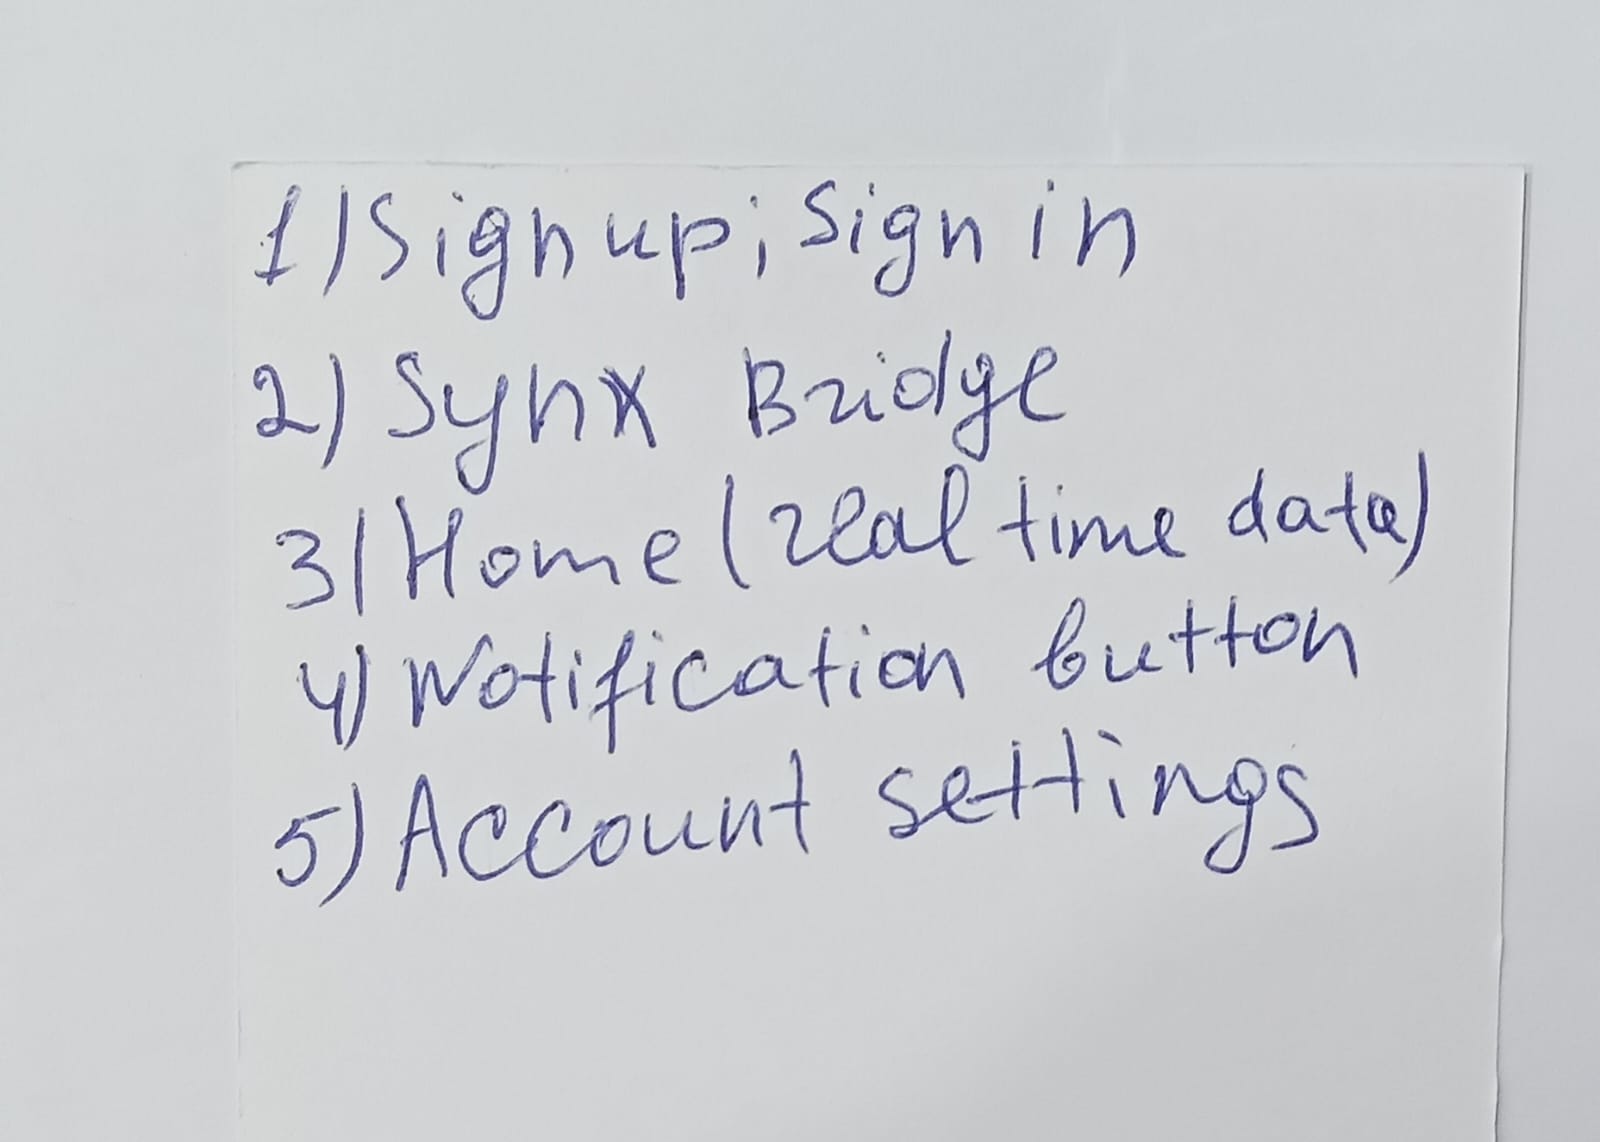 1) Sign up; Sign in
2) Synx Bridge
3) Home (real time data)
4) Notification button
5) Account settings